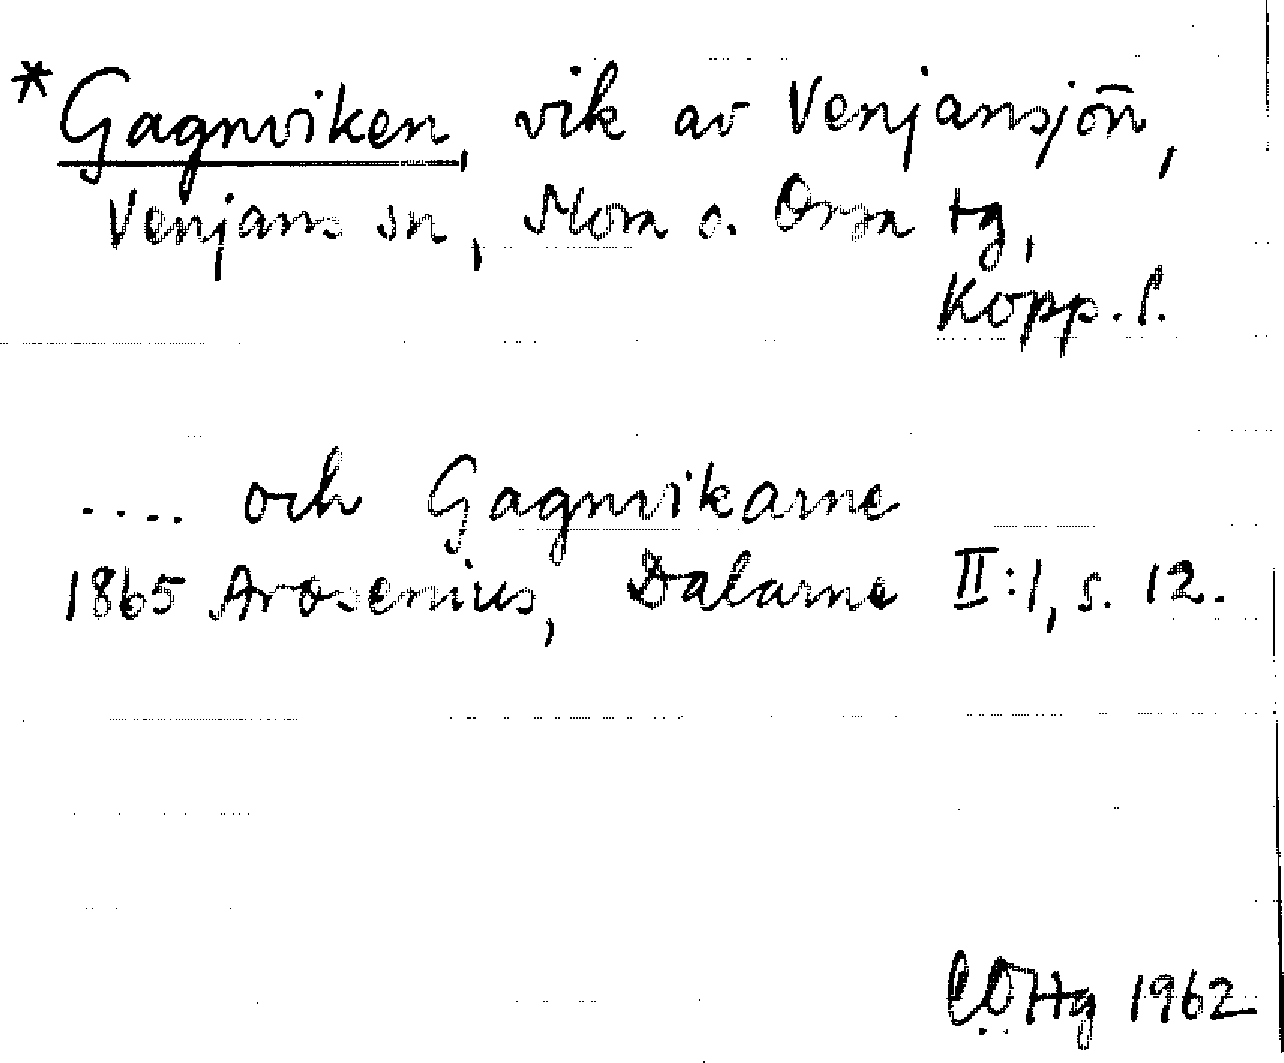 *Gagnviken, vik av Venjansjön,
Venjans sn, Mora o. Orsa tg,
Kopp. l.
.... och Gagnvikarne
1865 Arosenius, Dalarne II:1, s. 12.
CÖHg 1962